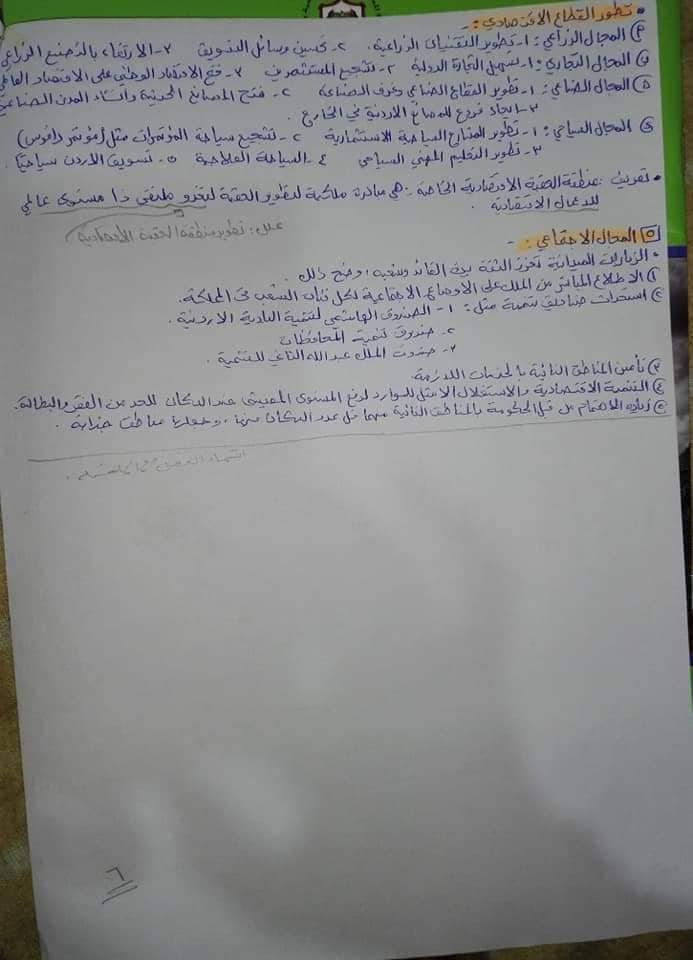 • تطور القطاع الاقتصادي :-
أ) المجال الزراعي : ١- تطوير التقنيات الزراعية . ٢- تحسين وسائل التسويق ٣- الارتقاء بالتصنيع الزراعي
ب) المجال التجاري : ١- تسهيل التجارة الدولية ٢- تشجيع المستثمرين ٣- فتح الاقتصاد الوطني على الاقتصاد العالمي
ج) المجال الصناعي : ١- تطوير القطاع الصناعي وغرف الصناعة ٢- فتح المصانع الحديثة وانشاء المدن الصناعية
٣- ايجاد فروع للمصانع الاردنية في الخارج .
د) المجال السياحي : ١- تطوير المشاريع السياحية الاستثمارية ٢- تشجيع سياحة المؤتمرات مثل (مؤتمر دافوس)
٣- تطوير التعليم المهني السياحي ٤- السياحة العلاجية ٥- تسويق الأردن سياحيًا .
• تعريف منطقة العقبة الاقتصادية الخاصة :- هي مبادرة ملكية لتطوير العقبة لتغدو ملتقى ذا مستوى عالمي
للاعمال الاقتصادية .
علل : تطوير منطقة العقبة الاقتصادية
٥ المجال الاجتماعي :-
• الزيارات الميدانية تعزز الثقة بين القائد وشعبه ، وضح ذلك .
١ الاطلاع المباشر من الملك على الاوضاع الاجتماعية لكل فئات الشعب في المملكة .
٢ استحداث صناديق تنمية مثل : ١- الصندوق الهاشمي لتنمية البادية الاردنية .
٢- صندوق تنمية المحافظات
٣- صندوق الملك عبدالله الثاني للتنمية .
٣ تأمين المناطق النائية بالخدمات اللازمة .
٤ التنمية الاقتصادية والاستغلال الامثل للموارد لرفع المستوى المعيشي عند السكان للحد من الفقر والبطالة .
٥ زيادة الاهتمام من قبل الحكومة بالمناطق النائية مهما قل عدد السكان فيها ، وجعلها مناطق جذابة .
٦